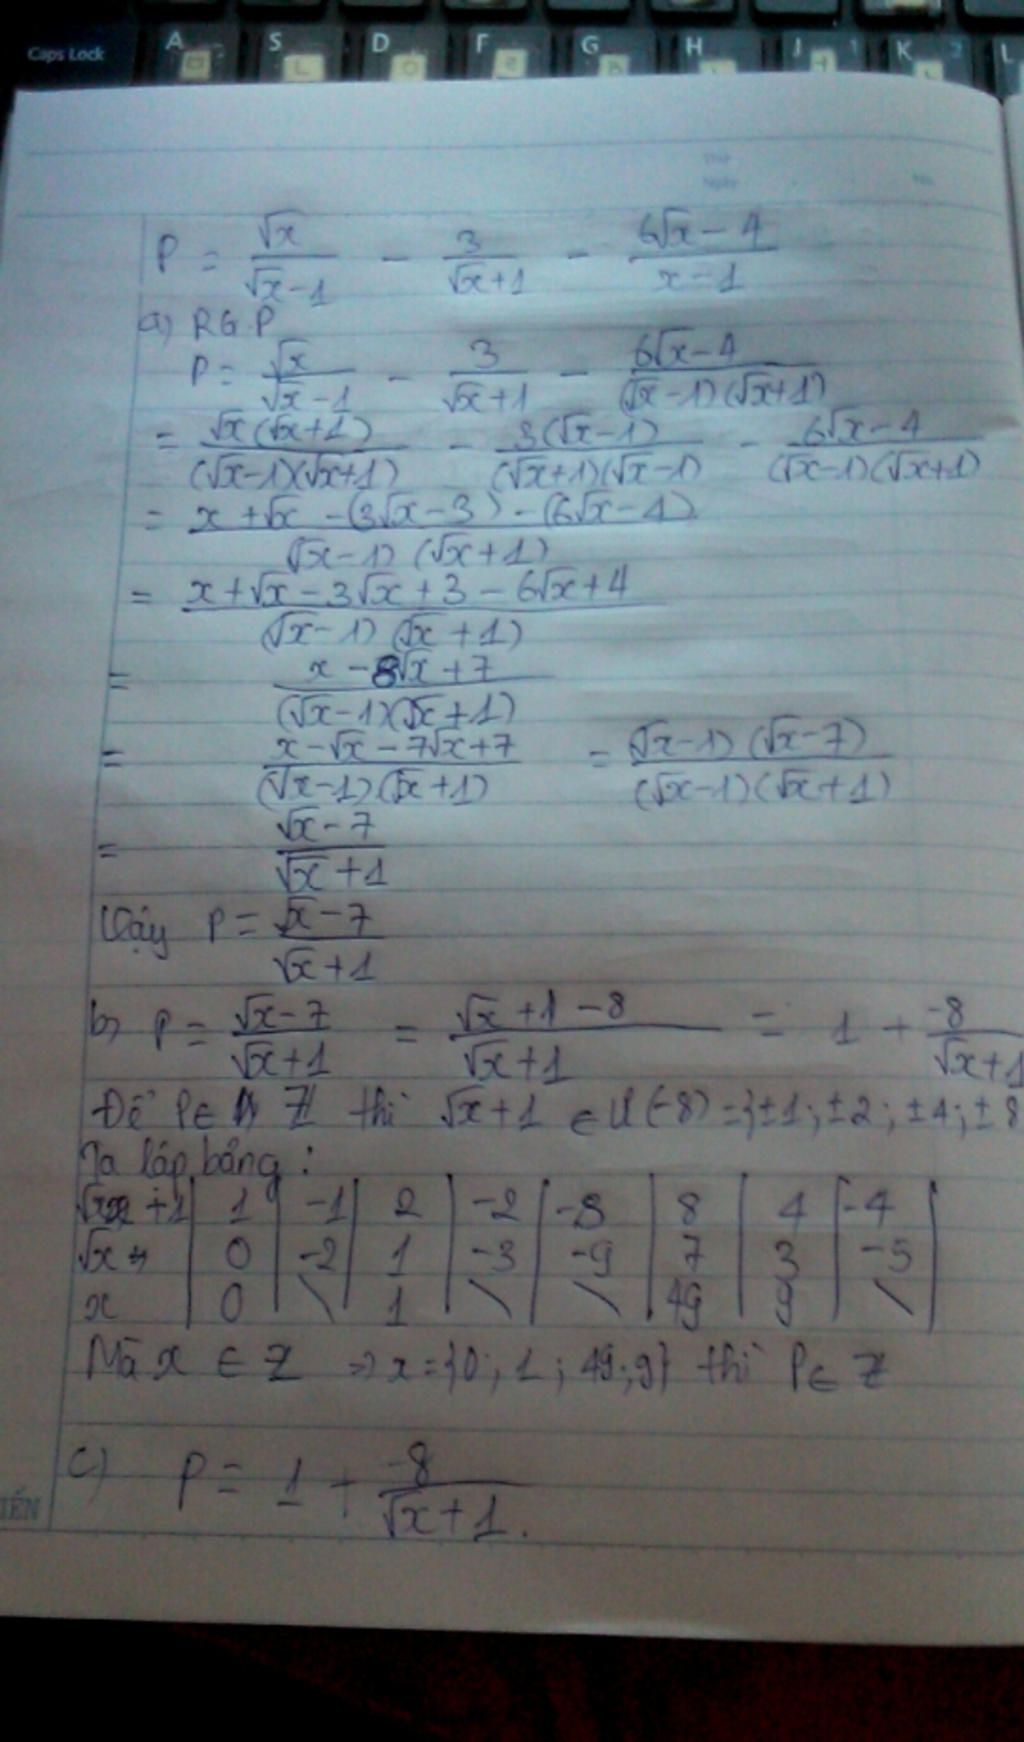 Caps Lock A S D F G H J K L
P = √x/(√x-1) - 3/(√x+1) - (6√x-4)/(x-1)
a) RG P
P = √x/(√x-1) - 3/(√x+1) - (6√x-4)/((√x-1)(√x+1))
= √x(√x+1)/((√x-1)(√x+1)) - 3(√x-1)/((√x+1)(√x-1)) - (6√x-4)/((√x-1)(√x+1))
= (x+√x-(3√x-3)-(6√x-4))/((√x-1)(√x+1))
= (x+√x-3√x+3-6√x+4)/((√x-1)(√x+1))
= (x-8√x+7)/((√x-1)(√x+1))
= (x-√x-7√x+7)/((√x-1)(√x+1)) = (√x-1)(√x-7)/((√x-1)(√x+1))
= (√x-7)/(√x+1)
Vậy P = (√x-7)/(√x+1)
b) P = (√x-7)/(√x+1) = (√x+1-8)/(√x+1) = 1 + -8/(√x+1)
Để P∈ Z thì √x+1 ∈ Ư(-8) = {±1; ±2; ±4; ±8
Ta lập bảng:
√x +1 | 1 | -1 | 2 | -2 | -8 | 8 | 4 | -4 |
√x | 0 | -2 | 1 | -3 | -9 | 7 | 3 | -5 |
x | 0 | \ | 1 | \ | \ | 49 | 9 | \ |
Mà x ∈ Z => x = {0; 1; 49; 9} thì P∈ Z
c) P = 1 + -8/(√x+1).
IẾN